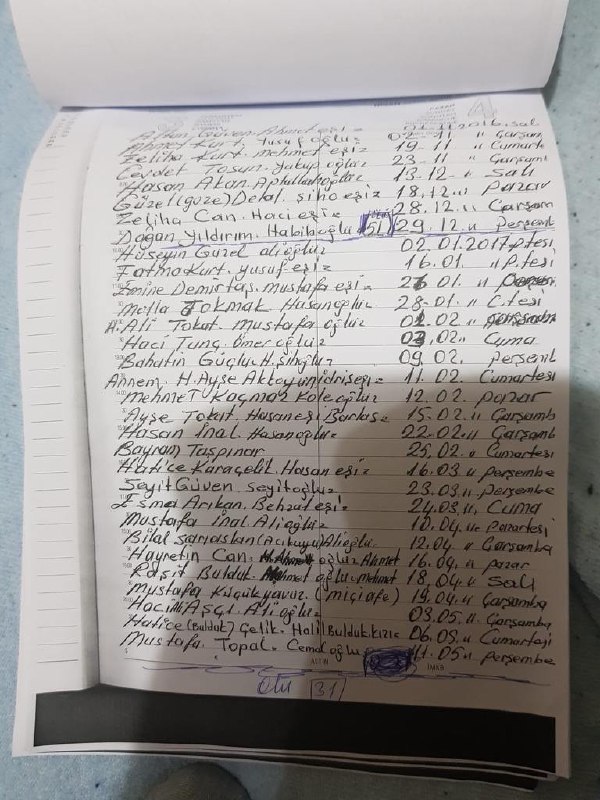 Güven Ahmet eşi = 01.11.2016.Salı
Ahmet Kurt. Yusuf oğlu = 02-11 " Çarşam
Zeliha Kurt. Mehmet eşi = 19-11 " Cumarte
Cevdet Tosun. Yakup oğlu = 23-11 " Çarşamb
Hasan Akan. Aptullahoğlu = 13.12 " Salı
Güzel (güze) Delal. Sino eşi = 18.12 " Pazar
Zeliha Can. Hacı eşi = 28.12. " Çarşam
Doğan Yıldırım. Habiboğlu 51 29.12. " Perşemb
Hüseyin Gürel alioğlu = 02.01.2017.P.tesi
Fatma Kurt. yusuf eşi = 16.01. " P.tesi
Emine Demirtaş. Mustafa eşi = 01. "
Molla Tokmak. Hasanoğlu = 28-01. " C.tesi
H. Ali Tokat. Mustafa oğlu = 02 "
Hacı Tunç. Ömer oğlu = 02 " Cuma
Bahatin Güçlü. H. = 09.02. Perşemb
Annem. H. Ayşe idriseşi = 11.02. Cumartesi
Mehmet Kaçmaz Koleoğlu = 12.02. Pazar
Ayşe Tokat. Hasan eşi = 15.02. " Çarşamb
Hasan İnal. Hasanoğlu = 22-02. " Çarşamb
Bayram Taşpınar 25.02 " Cumartesi
Hatice Karaçelik. Hasan eşi = 16.03 " perşembe
Seyit Güven. Seyitoğlu = 23.03. " perşembe
Esma Arıkan. Behzat eşi = 24.03. " Cuma
Mustafa İnal. Alioğlu = 10.04. " Pazartesi
Bilal Sarıaslan (Acıkuyu) Alioğlu. 12.04. " Çarşamba
Hayretin Can. oğlu = Ahmet 16.04. " pazar
Raşit Bulduk. oğlu = Mehmet 18.04. " Salı
Mustafa Küçükyavuz. 19.04. " Çarşamba
Aşçı. Alioğlu = 03.05. " Çarşamba
Hatice (Bulduk) Çelik. Halil Bulduk kızı = 06.05. " Cumartesi
Mustafa. Topal. Cemal oğlu 11.05 " perşembe
ALTIN
İMKB
Ölü 31